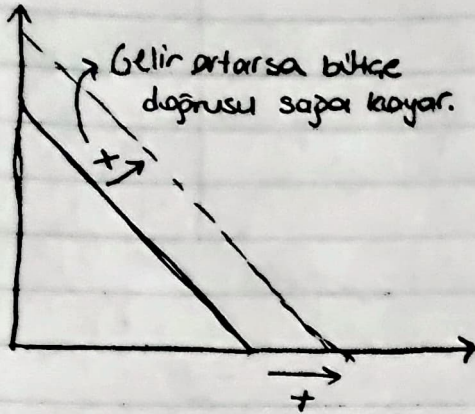 Gelir artarsa bütçe
doğrusu sağa kayar.
+
+